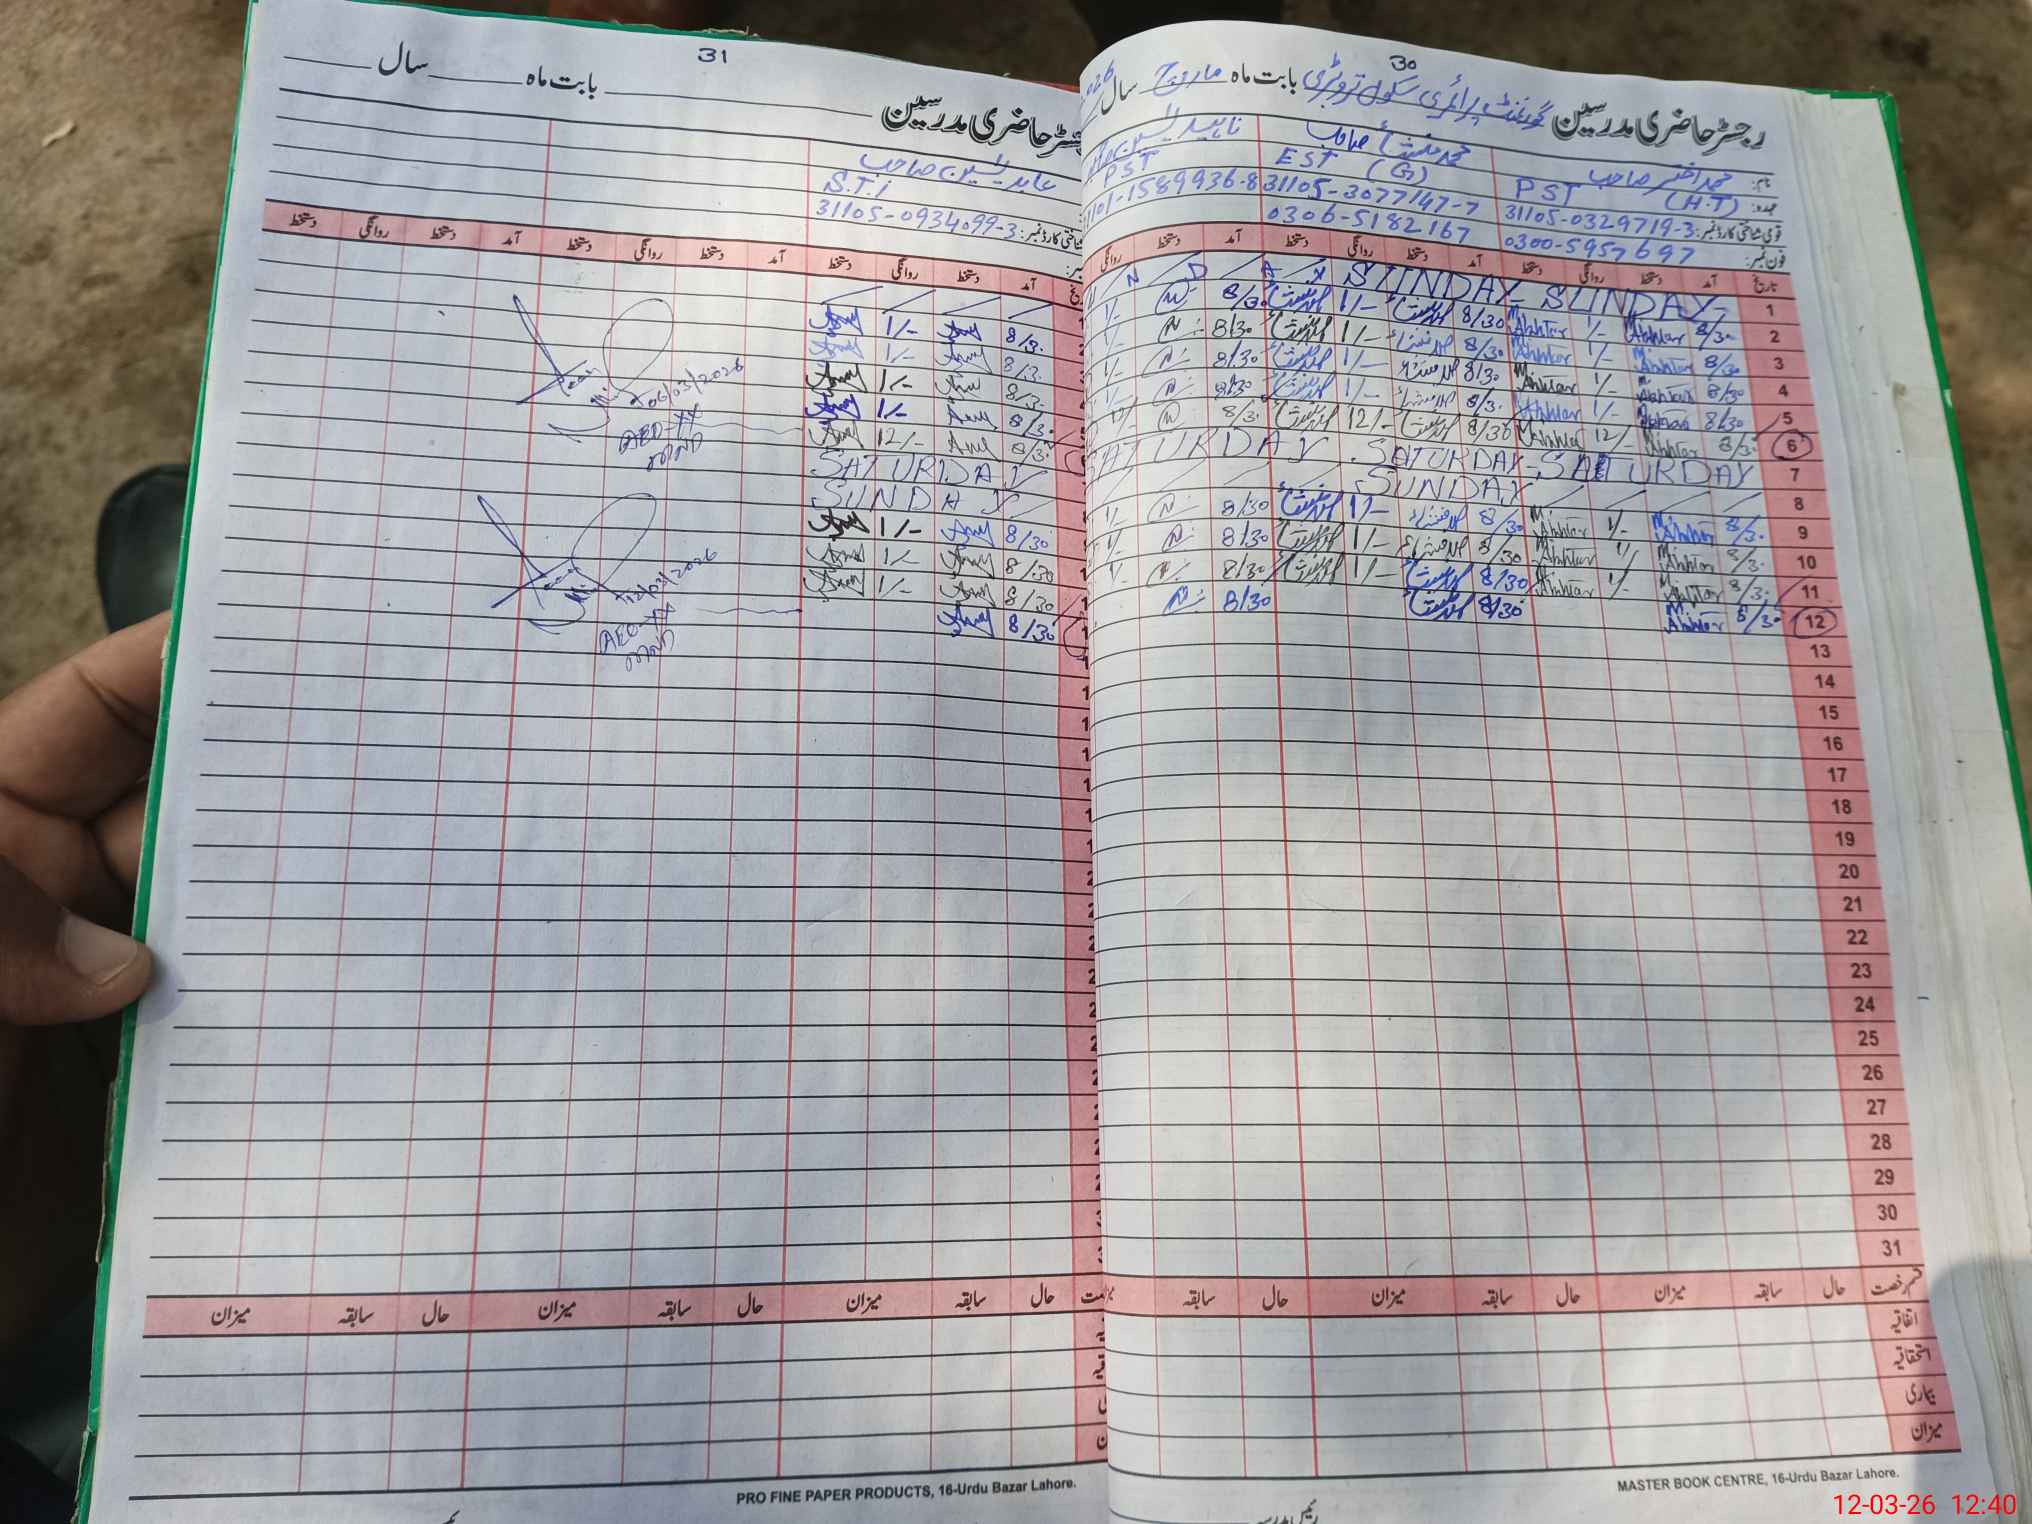 30
رجسٹر حاضری مدرسین گورنمنٹ پرائمری سکول بابت ماہ مارچ سال
نام: محمد اختر صاحب محمد منشاء صاحب ناہید یٰسین
عہدہ: PST (H.T) EST (G) PST
قومی شناختی کارڈ نمبر: 31105-0329719-3 31105-3077147-7 101-1589936-8
فون نمبر: 0300-5957697 0306-5182167
تاریخ آمد دستخط روانگی دستخط آمد دستخط روانگی دستخط آمد دستخط روانگی
1 SUNDAY - SUNDAY -
2 8/30 M. Akhtar 1/- M. Akhtar 8/30 1/- 8/30 1/-
3 8/30 M. Akhtar 1/- M. Akhtar 8/30 1/- 8/30 1/-
4 8/30 M. Akhtar 1/- M. Akhtar 8/30 1/- 8/30 1/-
5 8/30 M. Akhtar 1/- M. Akhtar 8/30 1/- 8/30 1/-
6 8/30 M. Akhtar 12/- M. Akhtar 8/30 12/- 8/30 12/-
7 SATURDAY - SATURDAY - SATURDAY
8 SUNDAY
9 8/30 M. Akhtar 1/- M. Akhtar 8/30 1/- 8/30 1/-
10 8/30 M. Akhtar 1/- M. Akhtar 8/30 1/- 8/30 1/-
11 8/30 M. Akhtar 1/- M. Akhtar 8/30 1/- 8/30 1/-
12 8/30 M. Akhtar 8/30 8/30
13
14
15
16
17
18
19
20
21
22
23
24
25
26
27
28
29
30
31
قسم رخصت حال سابقہ میزان حال سابقہ میزان حال سابقہ
اتفاقیہ
استحقاقیہ
بیماری
میزان
MASTER BOOK CENTRE, 16-Urdu Bazar Lahore.
31
رجسٹر حاضری مدرسین بابت ماہ سال
عابد یٰسین صاحب
S.T.I
شناختی کارڈ نمبر: 31105-0934099-3
آمد دستخط روانگی دستخط آمد دستخط روانگی دستخط آمد دستخط روانگی دستخط
8/30 1/-
8/30 1/-
8/30 1/-
8/30 1/-
8/30 12/-
SATURDAY
SUNDAY
8/30 1/-
8/30 1/-
8/30 1/-
8/30
06/03/2026
AEO-XX
MND
12/03/2026
AEO-XX
MND
حال سابقہ میزان حال سابقہ میزان حال سابقہ میزان
PRO FINE PAPER PRODUCTS, 16-Urdu Bazar Lahore.
12-03-26 12:40